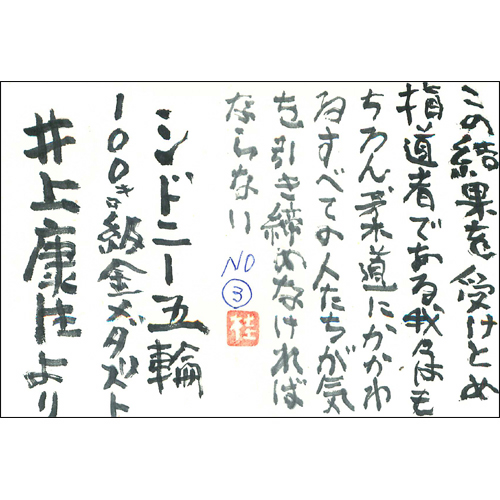 この結果を受けとめ
指導者である我々はも
ちろん柔道にかかわ
るすべての人たちが気
を引き締めなければ
ならない
NO
③
桂
シドニー五輪
100キロ級金メダスト
井上康生より